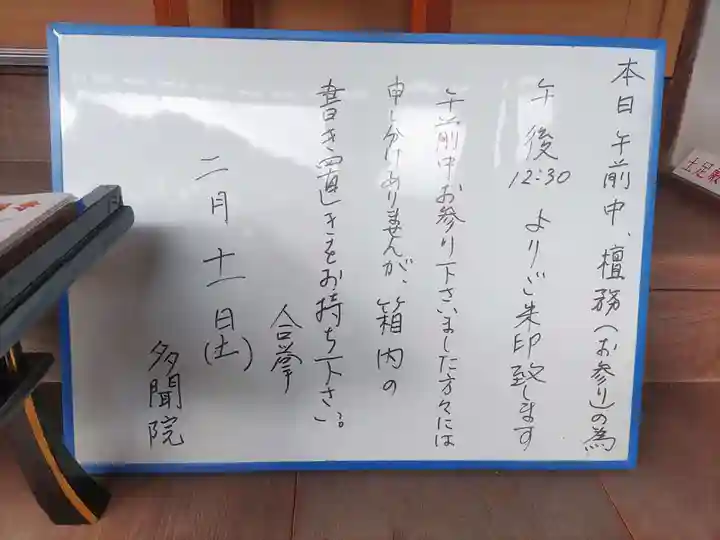 本日午前中、檀務(お参り)の為
午後12:30よりご朱印致します
午前中お参り下さいました方々には
申し分けありませんが、箱内の
書き置きをお持ち下さい。
合掌
二月十一日(土)
多聞院
土足